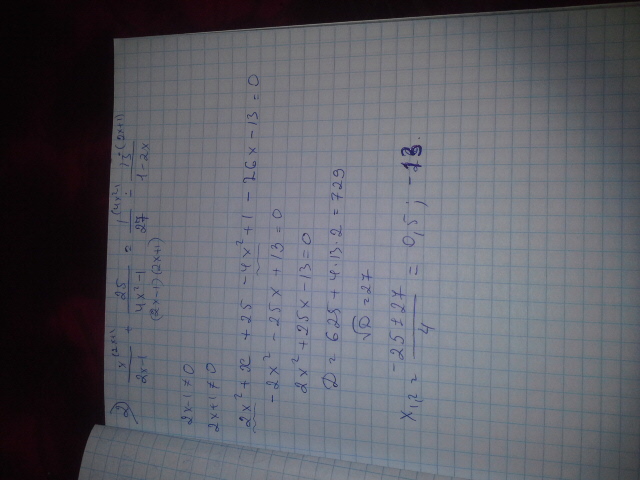 2) x(2x+1)/(2x-1) + 25/(4x²-1) = 1(4x²-1)/27 - 13(2x+1)/(1-2x)
(2x-1)(2x+1)
2x-1≠0
2x+1≠0
2x²+x+25-4x²+1-26x-13=0
-2x²-25x+13=0
2x²+25x-13=0
D=625+4·13·2=729
√D=27
x1,2 = (-25±27)/4 = 0,5; -13.